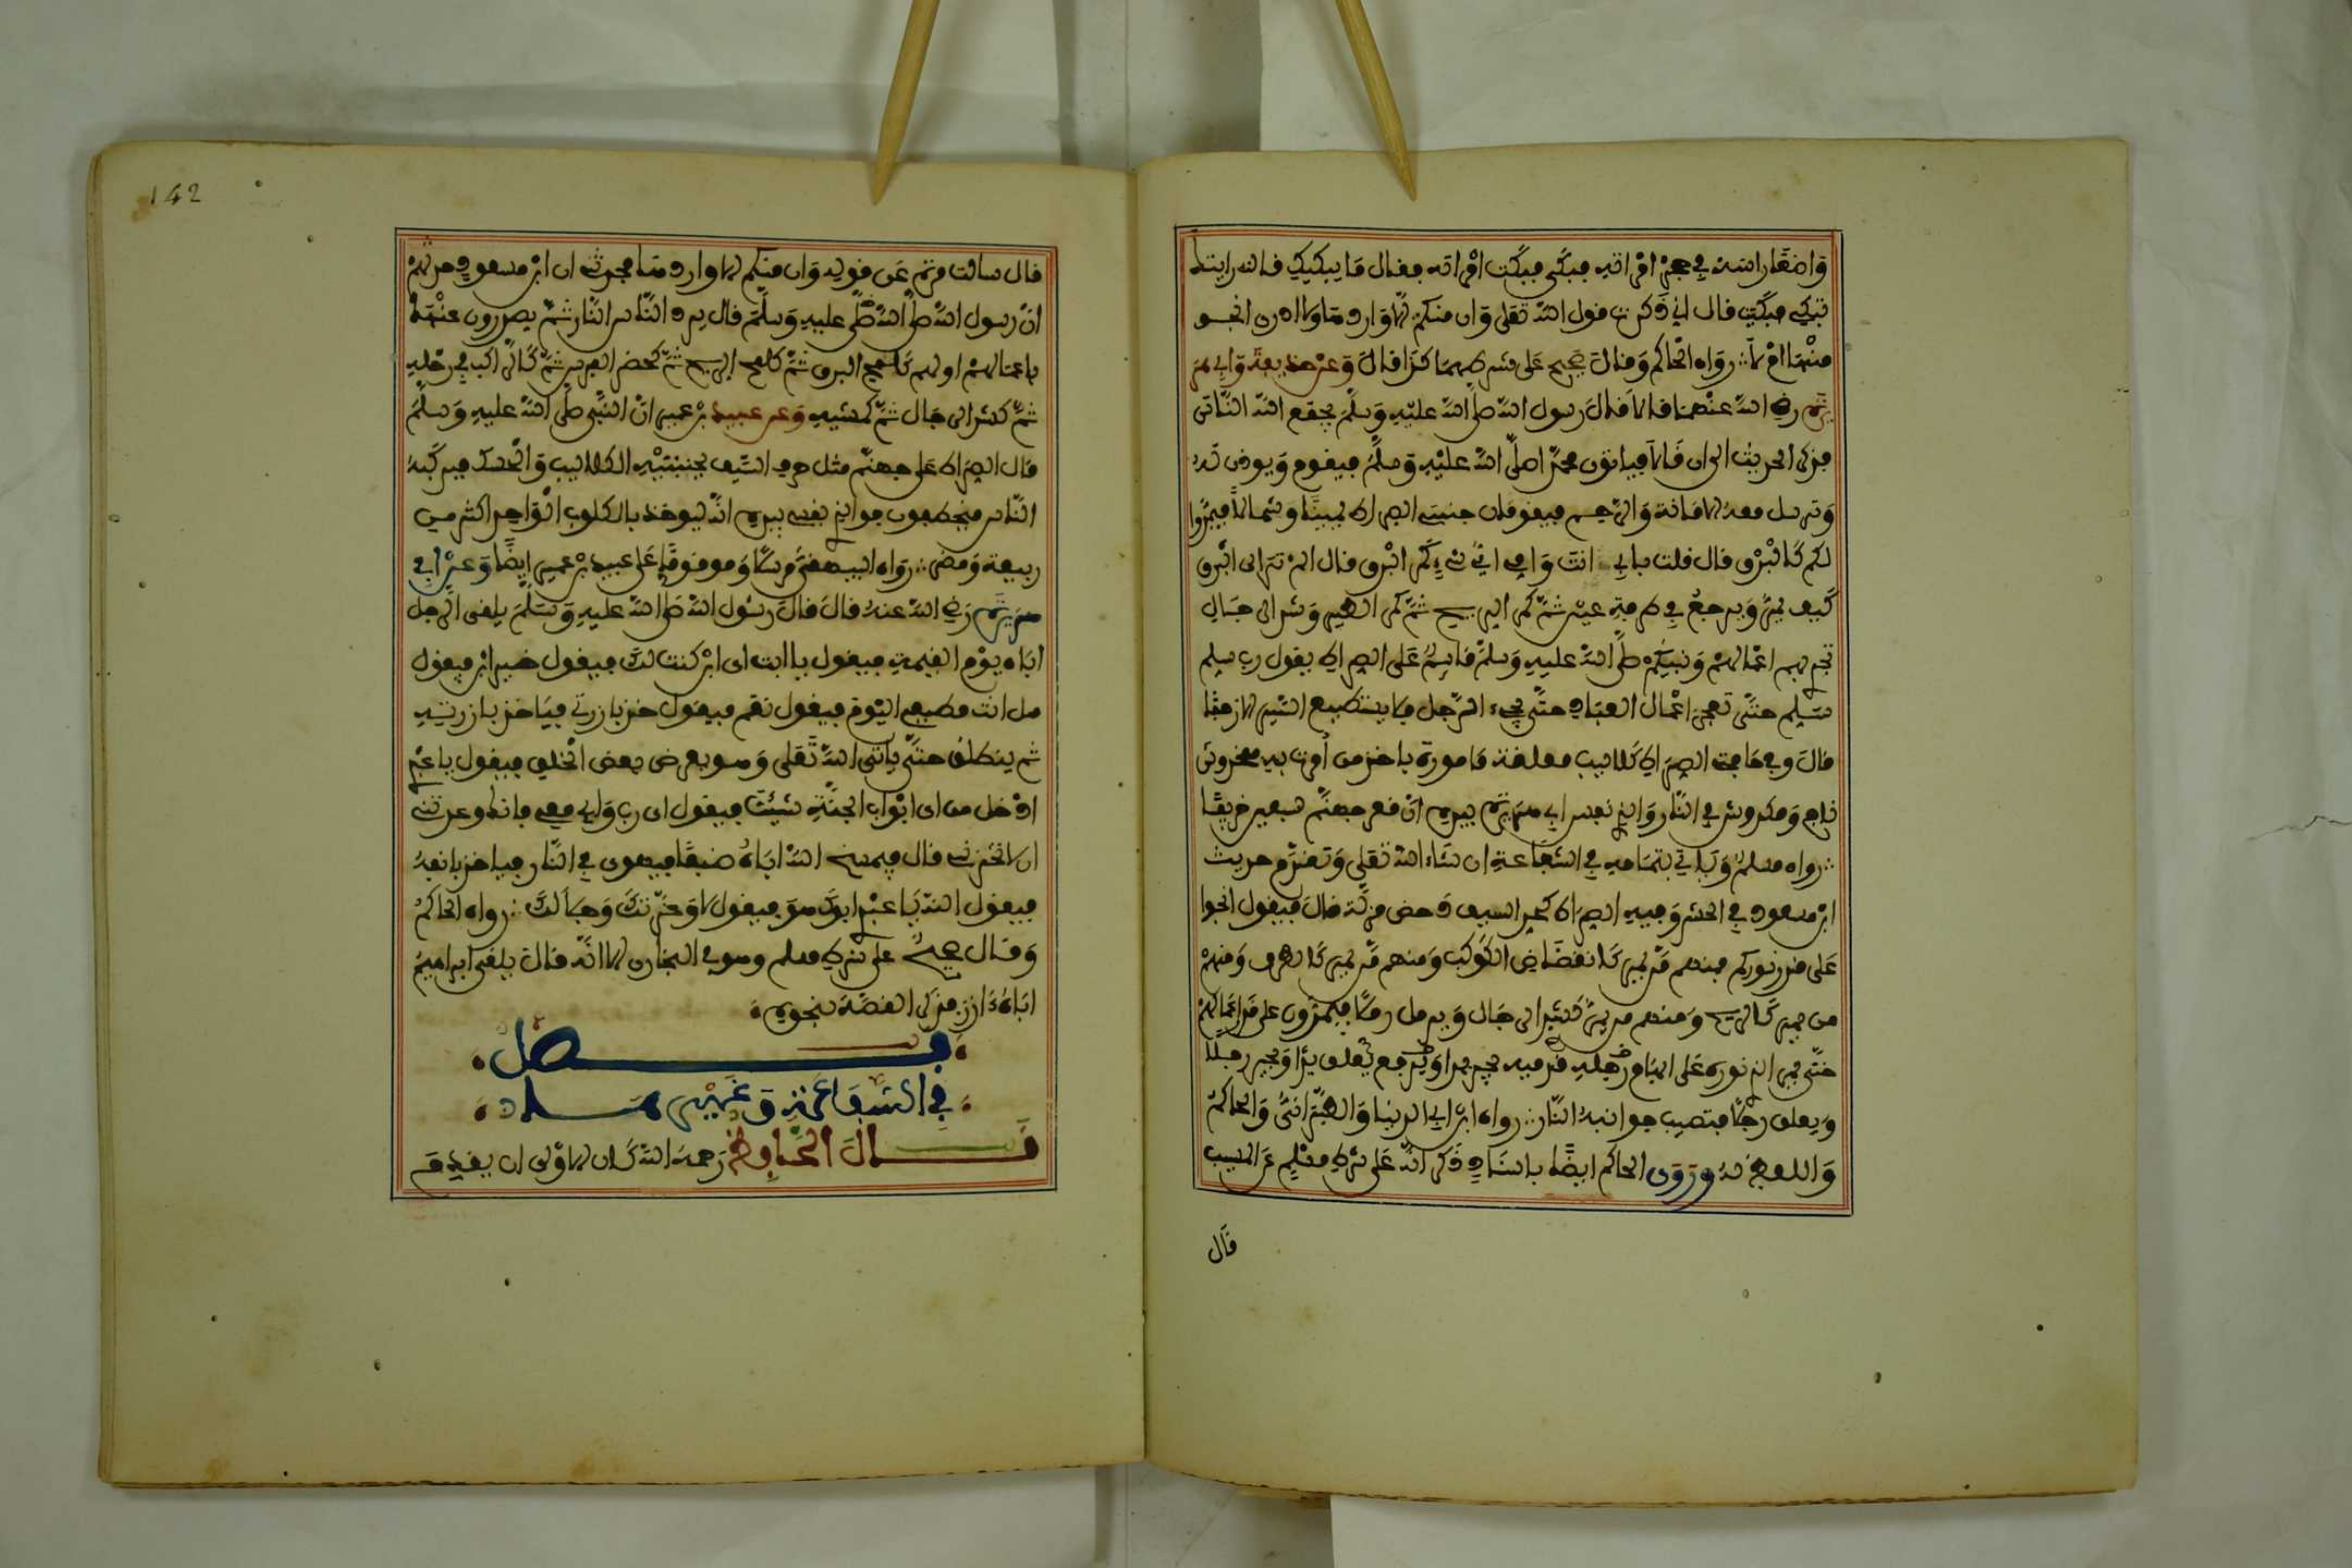 واضعا راسه في حجر امراته فبكى فبكت امراته فقال ما يبكيك قالت رايتك
تبكي فبكيت قال اني ذكرت قول الله تعلى وان منكم الا واردها ولا ادري انجو
منها ام لا ∴ رواه الحاكم وقال صحيح على شرطهما كذا قال وعن حذيفة وابي هر
يرة رضي الله عنهما قالا قال رسول الله صلى الله عليه وسلم يجمع الله الناس
فذكر الحديث الى ان قالا فياتون محمدا صلى الله عليه وسلم فيقوم ويوذن له
وترسل معه الامانة والرحم فيقومان جنبتي الصراط يمينا وشمالا فيمر اولـ
لكم كالبرق قال قلت بابي انت وامي اي شيء كمر البرق قال الم تر الى البرق
كيف يمر ويرجع في طرفة عين ثم كمر الريح ثم كمر الطير وشد الرجال
تجري بهم اعمالهم ونبيكم صلى الله عليه وسلم قائم على الصراط يقول رب سلم
سلم حتى تعجز اعمال العباد حتى يجيء الرجل فلا يستطيع السير الا زحفا
قال وفي حافتي الصراط كلاليب معلقة مامورة باخذ من امرت به فمخدوش
ناج ومكدوش في النار والذي نفس ابي هريرة بيده ان قعر جهنم لسبعين خريفا
∴ رواه مسلم وياتي بتمامه في الشفاعة ان شاء الله تعلى وتقدم حديث
ابن مسعود في الحشر وفيه الصراط كحد السيف دحض مزلة قال فيقول انجوا
على قدر نوركم فمنهم من يمر كانقضاض الكوكب ومنهم من يمر كالطرف ومنهم
من يمر كالريح ومنهم من يمر كشد الرجال ويرمل رملا فيمرون على قدر اعمالهم
حتى يمر الذي نوره على ابهام رجليه قدميه يجر يدا ويرفع يعلق يدا ويجر رجلا
ويعلق رجلا فتصيب جوانبه النار ∴ رواه ابن ابي الدنيا والطبراني والحاكم
واللفظ له وروى الحاكم ايضا باسناد ذكر انه على شرط مسلم عن المسيب
قال
142
قال سالت مرة عن قوله وان منكم الا واردها فحدثني ان ابن مسعود حدثهم
ان رسول الله صلى الله عليه وسلم قال يرد الناس النار ثم يصدرون عنها
باعمالهم اولهم كلمح البرق ثم كلمح الريح ثم كحضر الفرس ثم كالراكب في رحله
ثم كشد الرجال ثم كمشيه وعن عبيد بن عمير ان النبي صلى الله عليه وسلم
قال الصراط على جهنم مثل حرف السيف بجنبتيه الكلاليب والحسك فيركبه
الناس فيختطفون فوالذي نفسي بيده انه ليوخذ بالكلوب الواحد اكثر من
ربيعة ومضر ∴ رواه البيهقي مرسلا وموقوفا على عبيد بن عمير ايضا وعن ابي
هريرة رضي الله عنه قال قال رسول الله صلى الله عليه وسلم يلقى الرجل
اباه يوم القيمة فيقول يا ابت اي ابن كنت لك فيقول خير ابن فيقول
هل انت مطيعي اليوم فيقول نعم فيقول خذ بازرتي فياخذ بازرته
ثم ينطلق حتى ياتي الله تعلى وهو يعرض بعض الخلق فيقول يا عبدي
ادخل من اي ابواب الجنة شئت فيقول اي رب وابي معي فانك وعدتني
ان لا تخزني قال فيمسخ الله اباه ضبعا فيهوي في النار فياخذ بانفه
فيقول الله يا عبدي ابوك هو فيقول لا وعزتك وجلالك ∴ رواه الحاكم
وقال صحيح على شرط مسلم وهو في البخاري الا انه قال يلقى ابراهيم
اباه ءازر فذكر القصة بنحوه
فصل
في الشفاعة وغيرها
قال الحافظ رحمه الله كان الاولى ان يقدم